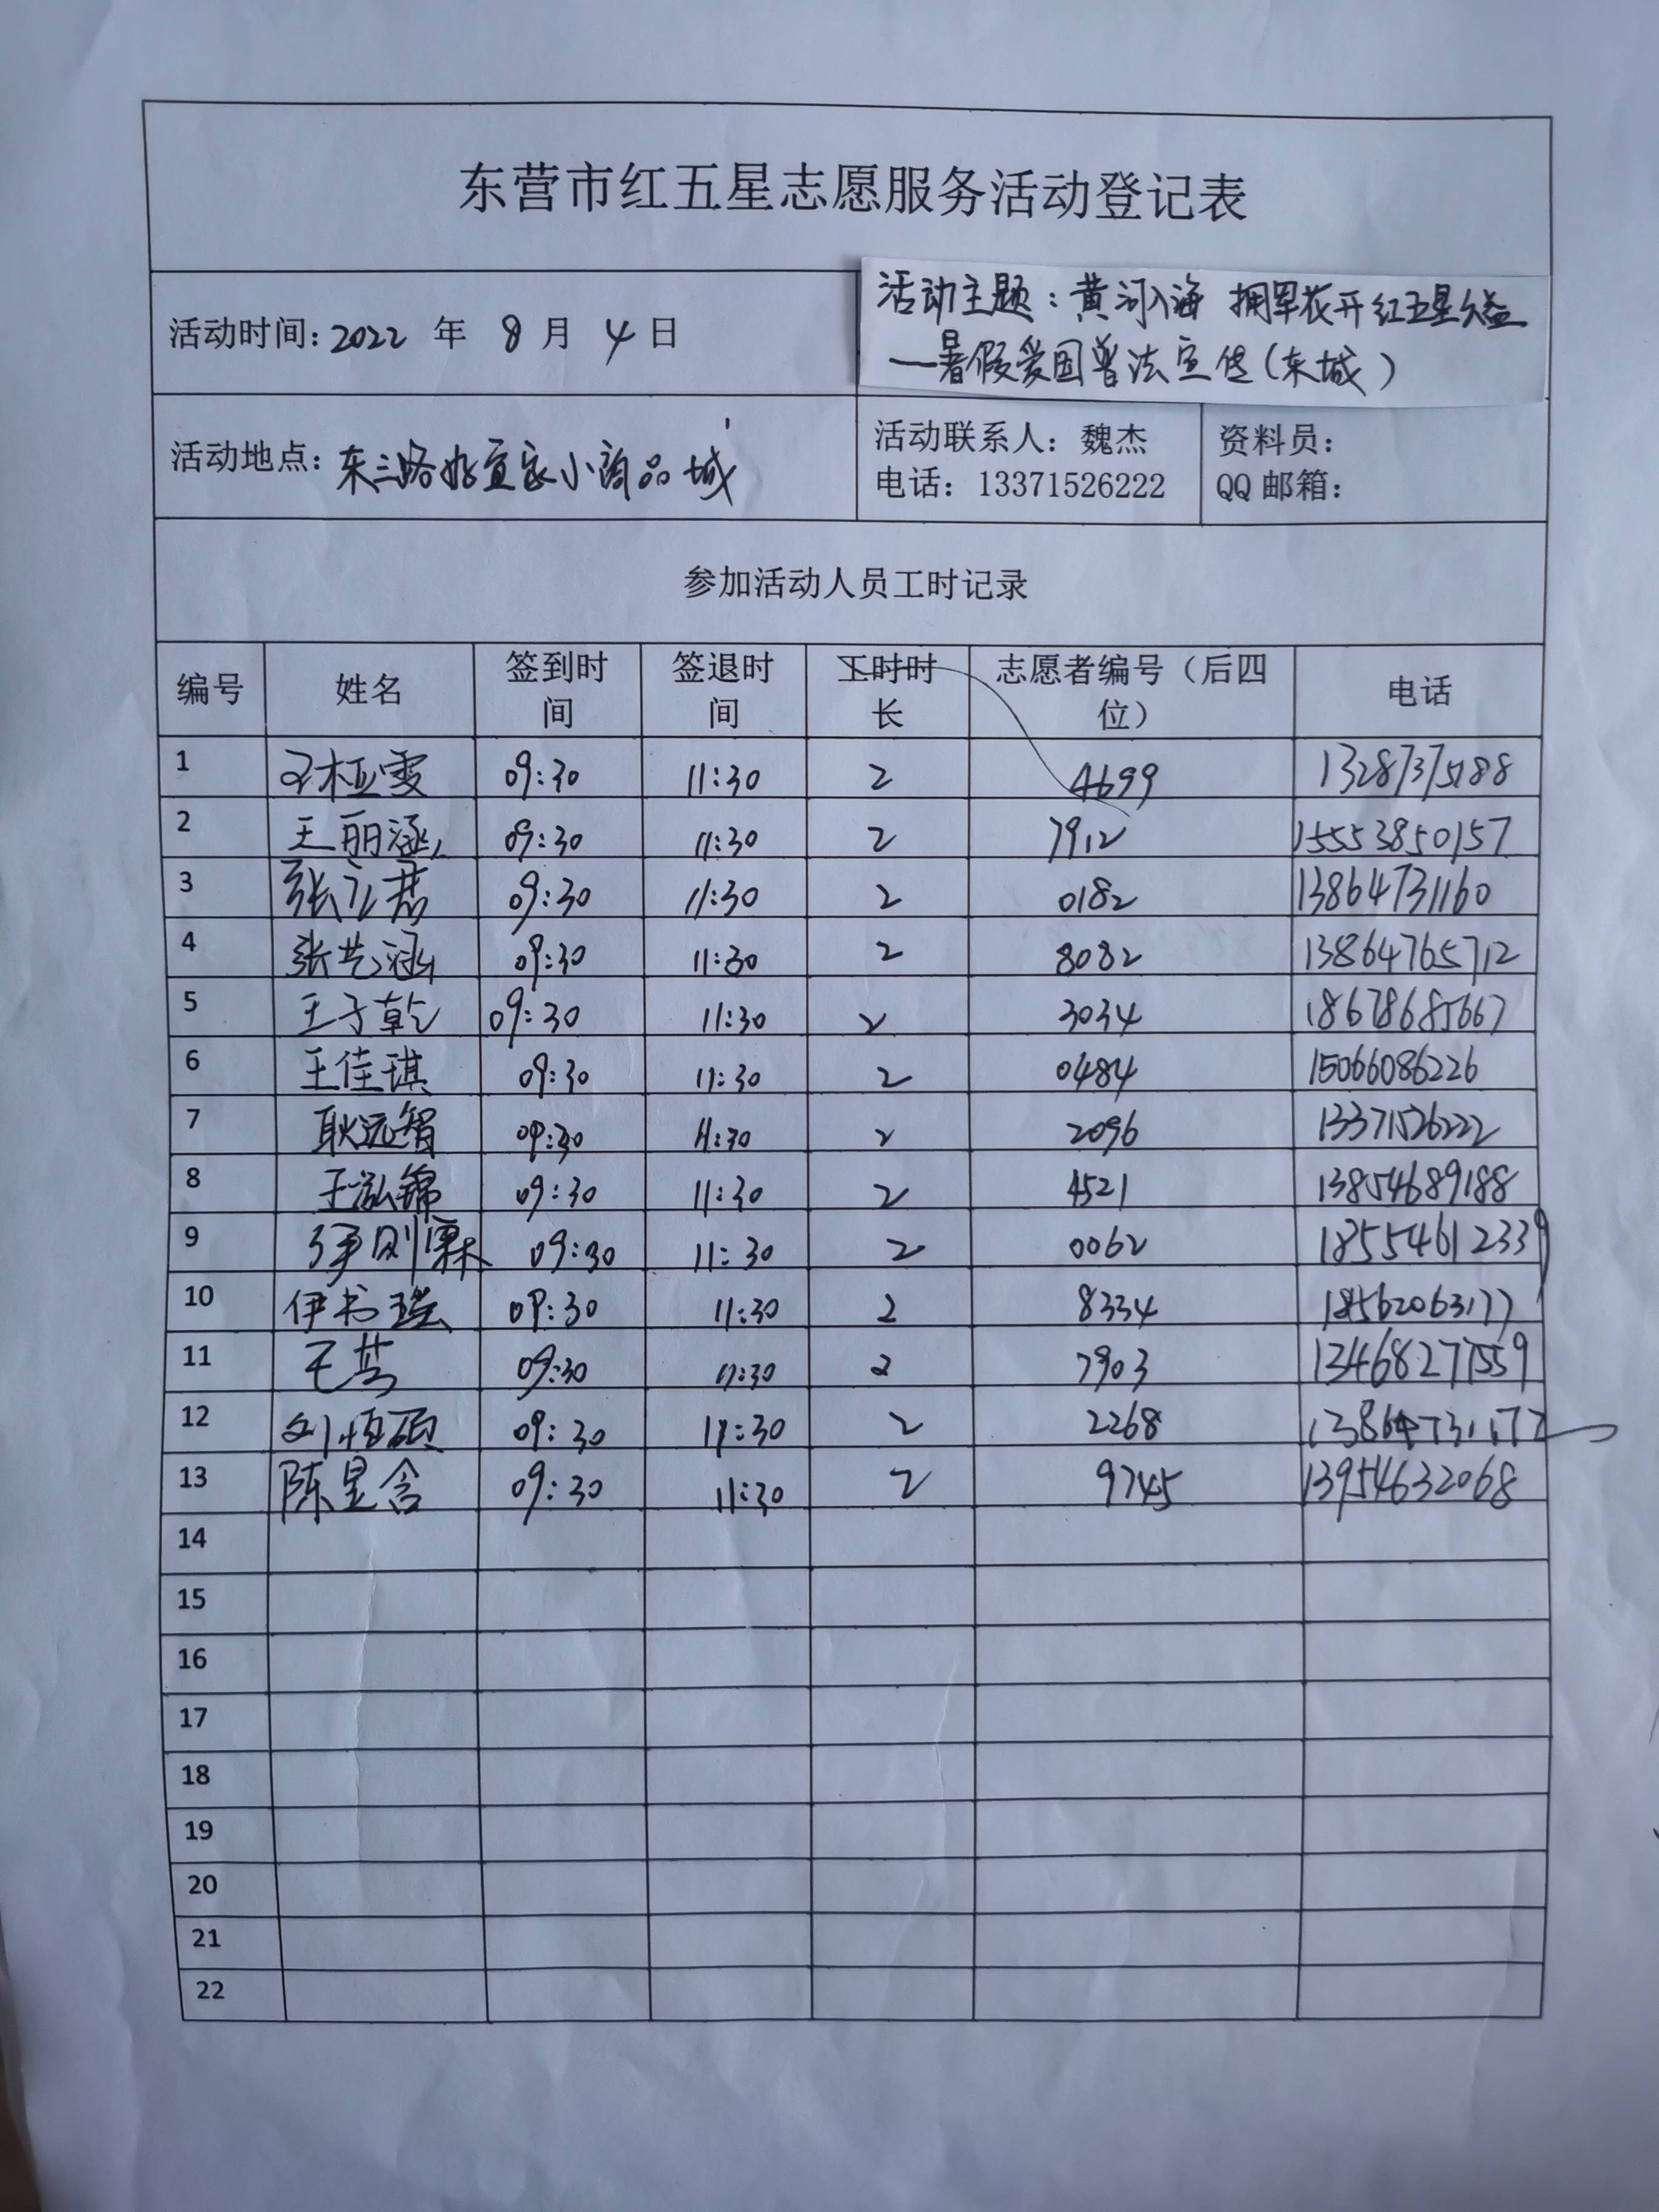 东营市红五星志愿服务活动登记表
活动时间：2022 年 8 月 4 日
活动主题：黄河入海 拥军花开红五星公益
—暑假爱国普法宣传（东城）
活动地点：东三路好宜家小商品城
活动联系人：魏杰
电话：13371526222
资料员：
QQ 邮箱：
参加活动人员工时记录
编号 姓名 签到时间 签退时间 工时时长 志愿者编号（后四位） 电话
1 09:30 11:30 2 4699 13287375188
2 王丽涵 09:30 11:30 2 7912 15553850157
3 张立君 09:30 11:30 2 0182 13864731160
4 张艺涵 09:30 11:30 2 8082 13864765712
5 王子乾 09:30 11:30 2 3034 18678685667
6 王佳琪 09:30 11:30 2 0484 15066086226
7 耿远智 09:30 11:30 2 2096 13371526222
8 王泓锦 09:30 11:30 2 4521 13854689188
9 09:30 11:30 2 0062 18554612339
10 伊书瑶 09:30 11:30 2 8334 18562063177
11 09:30 11:30 2 7903 13468277559
12 刘恒硕 09:30 11:30 2 2268 13864731177
13 陈昱含 09:30 11:30 2 9745 13954632068
14
15
16
17
18
19
20
21
22